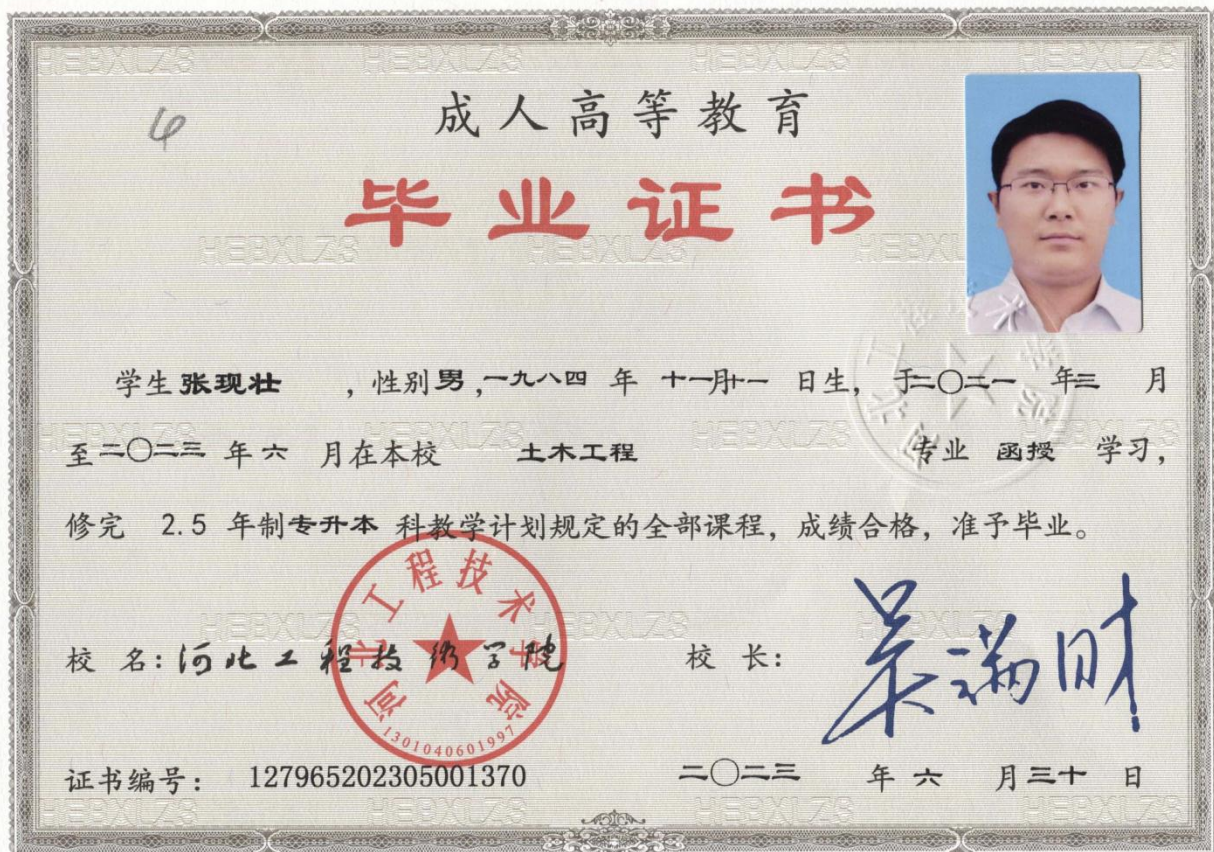 成人高等教育
毕业证书
学生 张现壮 , 性别 男 , 一九八四 年 十一月十一 日生, 于二〇二一 年三 月
至二〇二三 年 六 月在本校 土木工程 专业 函授 学习,
修完 2.5 年制专升本 科教学计划规定的全部课程, 成绩合格, 准予毕业。
校 名: 河北工程技术学院 校 长: 吴满财
河北工程技术学院
1301040601997
证书编号: 127965202305001370 二〇二三 年 六 月三十 日
河北工程技术学院
HEBXLZS